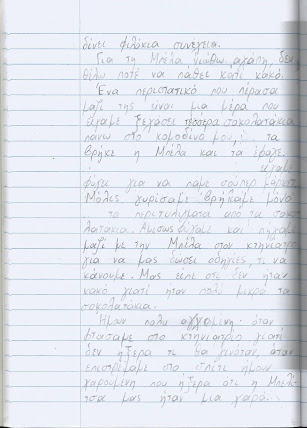 δίνει φιλάκια συνέχεια.
Για τη Μπέλα νιώθω αγάπη, δεν
θέλω ποτέ να πάθει κάτι κακό.
Ένα περιστατικό που πέρασα
μαζί της είναι μια μέρα που
είχαμε ξεχάσει τέσσερα σοκολατάκια
πάνω στο κομοδίνο μου, τα
βρήκε η Μπέλα και τα έφαγε.
είχαμε
φύγει για να πάμε σούπερ μάρκετ
Μόλις γυρίσαμε βρήκαμε μόνο
τα περιτυλίγματα από τα σοκο
λατάκια. Αμέσως φύγαμε και πήγαμε
μαζί με την Μπέλα στον κτηνίατρο
για να μας δώσει οδηγίες τι να
κάνουμε. Μας είπε ότι δεν ήταν
κακό γιατί ήταν πολύ μικρά τα
σοκολατάκια.
Ήμουν πολύ αγχομένη όταν
φτάσαμε στο κτηνιατρείο γιατί
δεν ήξερα τι θα γινόταν, όταν
επιστρέψαμε στο σπίτι ήμουν
χαρούμενη που ήξερα ότι η Μπελί
τσα μας ήταν μια χαρά...